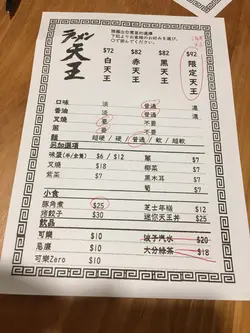 ラーメン
天王
$72
白天王
$82
赤天王
$82
黒天王
$92
限定天王
口味 淡 普通 濃
香油 淡 普通 濃
叉燒
蔥
麵 超硬 / 硬 / 普通 / 軟 / 超軟
另加選項
味蛋(半/全隻) $6 / $12 蔥 $7
叉燒 $18 椰菜 $7
紫菜 $7 黑木耳 $7
筍 $7
小食
豚角煮 $25 芝士年糕 $12
烤餃子 $30 迷你天王丼 $25
飲品
可樂 $10 波子汽水 $20
忌廉 $10 大分綠茶 $18
可樂Zero $10